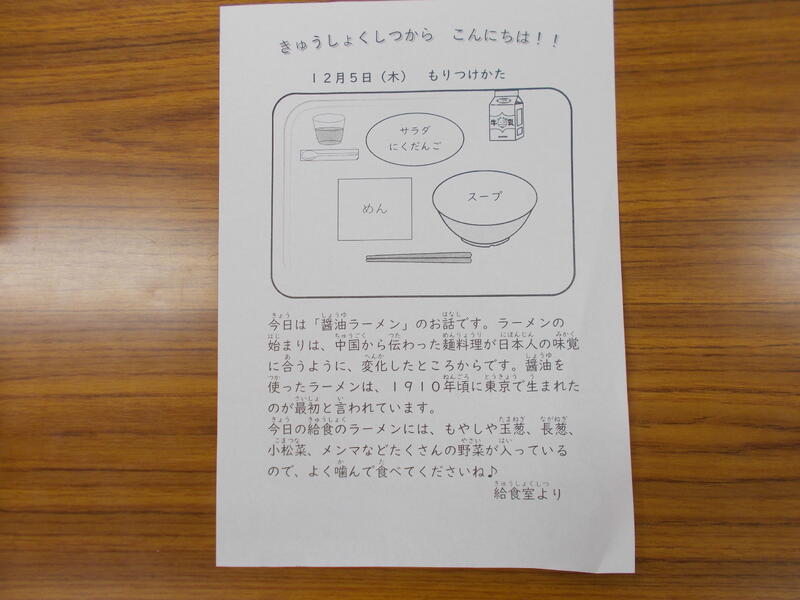 きゅうしょくしつから こんにちは！！
１２月５日（木） もりつけかた
サラダ
にくだんご
牛乳
めん
スープ
今日は「醤油ラーメン」のお話です。ラーメンの
始まりは、中国から伝わった麺料理が日本人の味覚
に合うように、変化したところからです。醤油を
使ったラーメンは、１９１０年頃に東京で生まれた
のが最初と言われています。
今日の給食のラーメンには、もやしや玉葱、長葱、
小松菜、メンマなどたくさんの野菜が入っている
ので、よく噛んで食べてくださいね♪
給食室より